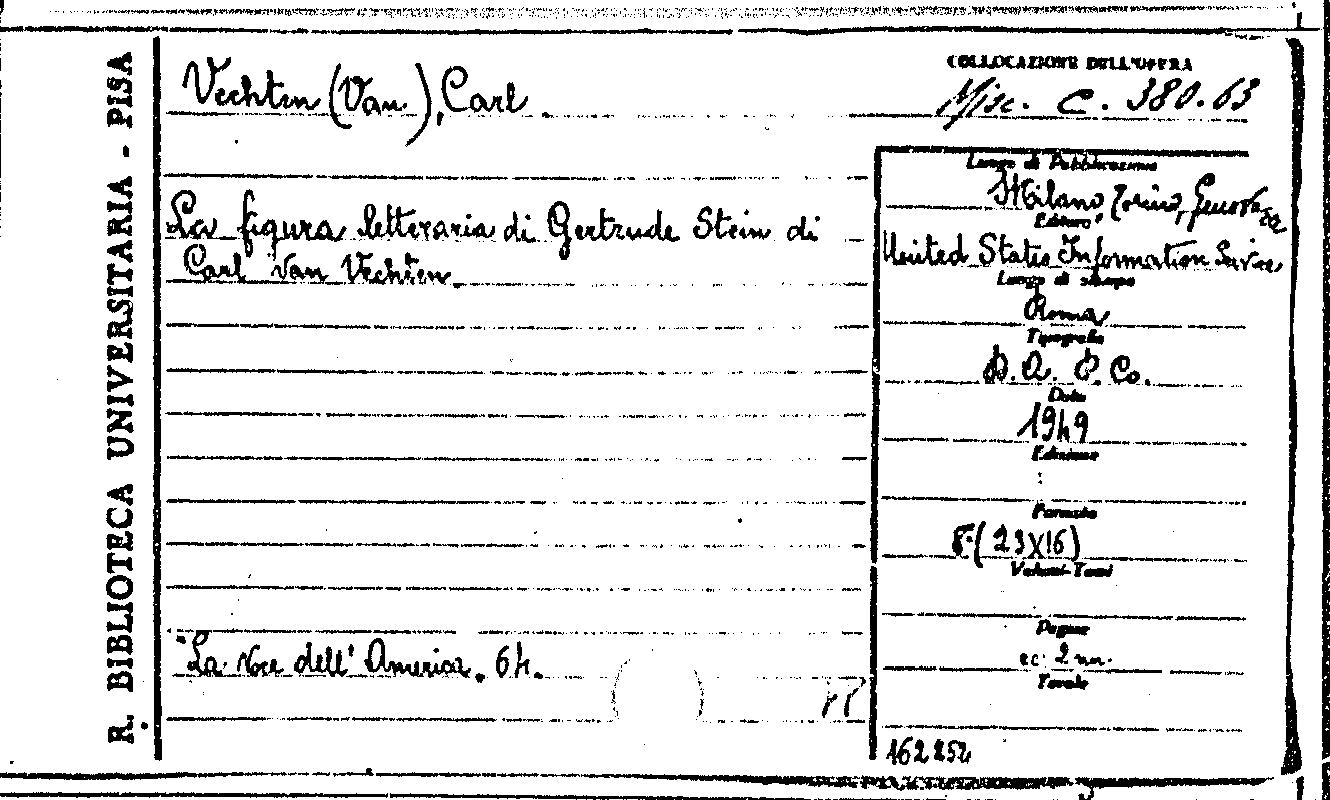 R. BIBLIOTECA UNIVERSITARIA - PISA
Vechten (Van), Carl
COLLOCAZIONE DELL'OPERA
Misc. C. 380.63
La figura letteraria di Gertrude Stein di
Carl Van Vechten.
"La voce dell'America. 64.
Luogo di Pubblicazione
Milano Torino, Genova
Editore
United States Information Service
Luogo di stampa
Roma
Tipografia
D.A. P. Co.
Data
1949
Edizione
Formato
8° (23x16)
Volumi-Tomi
Pagine
cc. 2 nn.
Tavole
162252